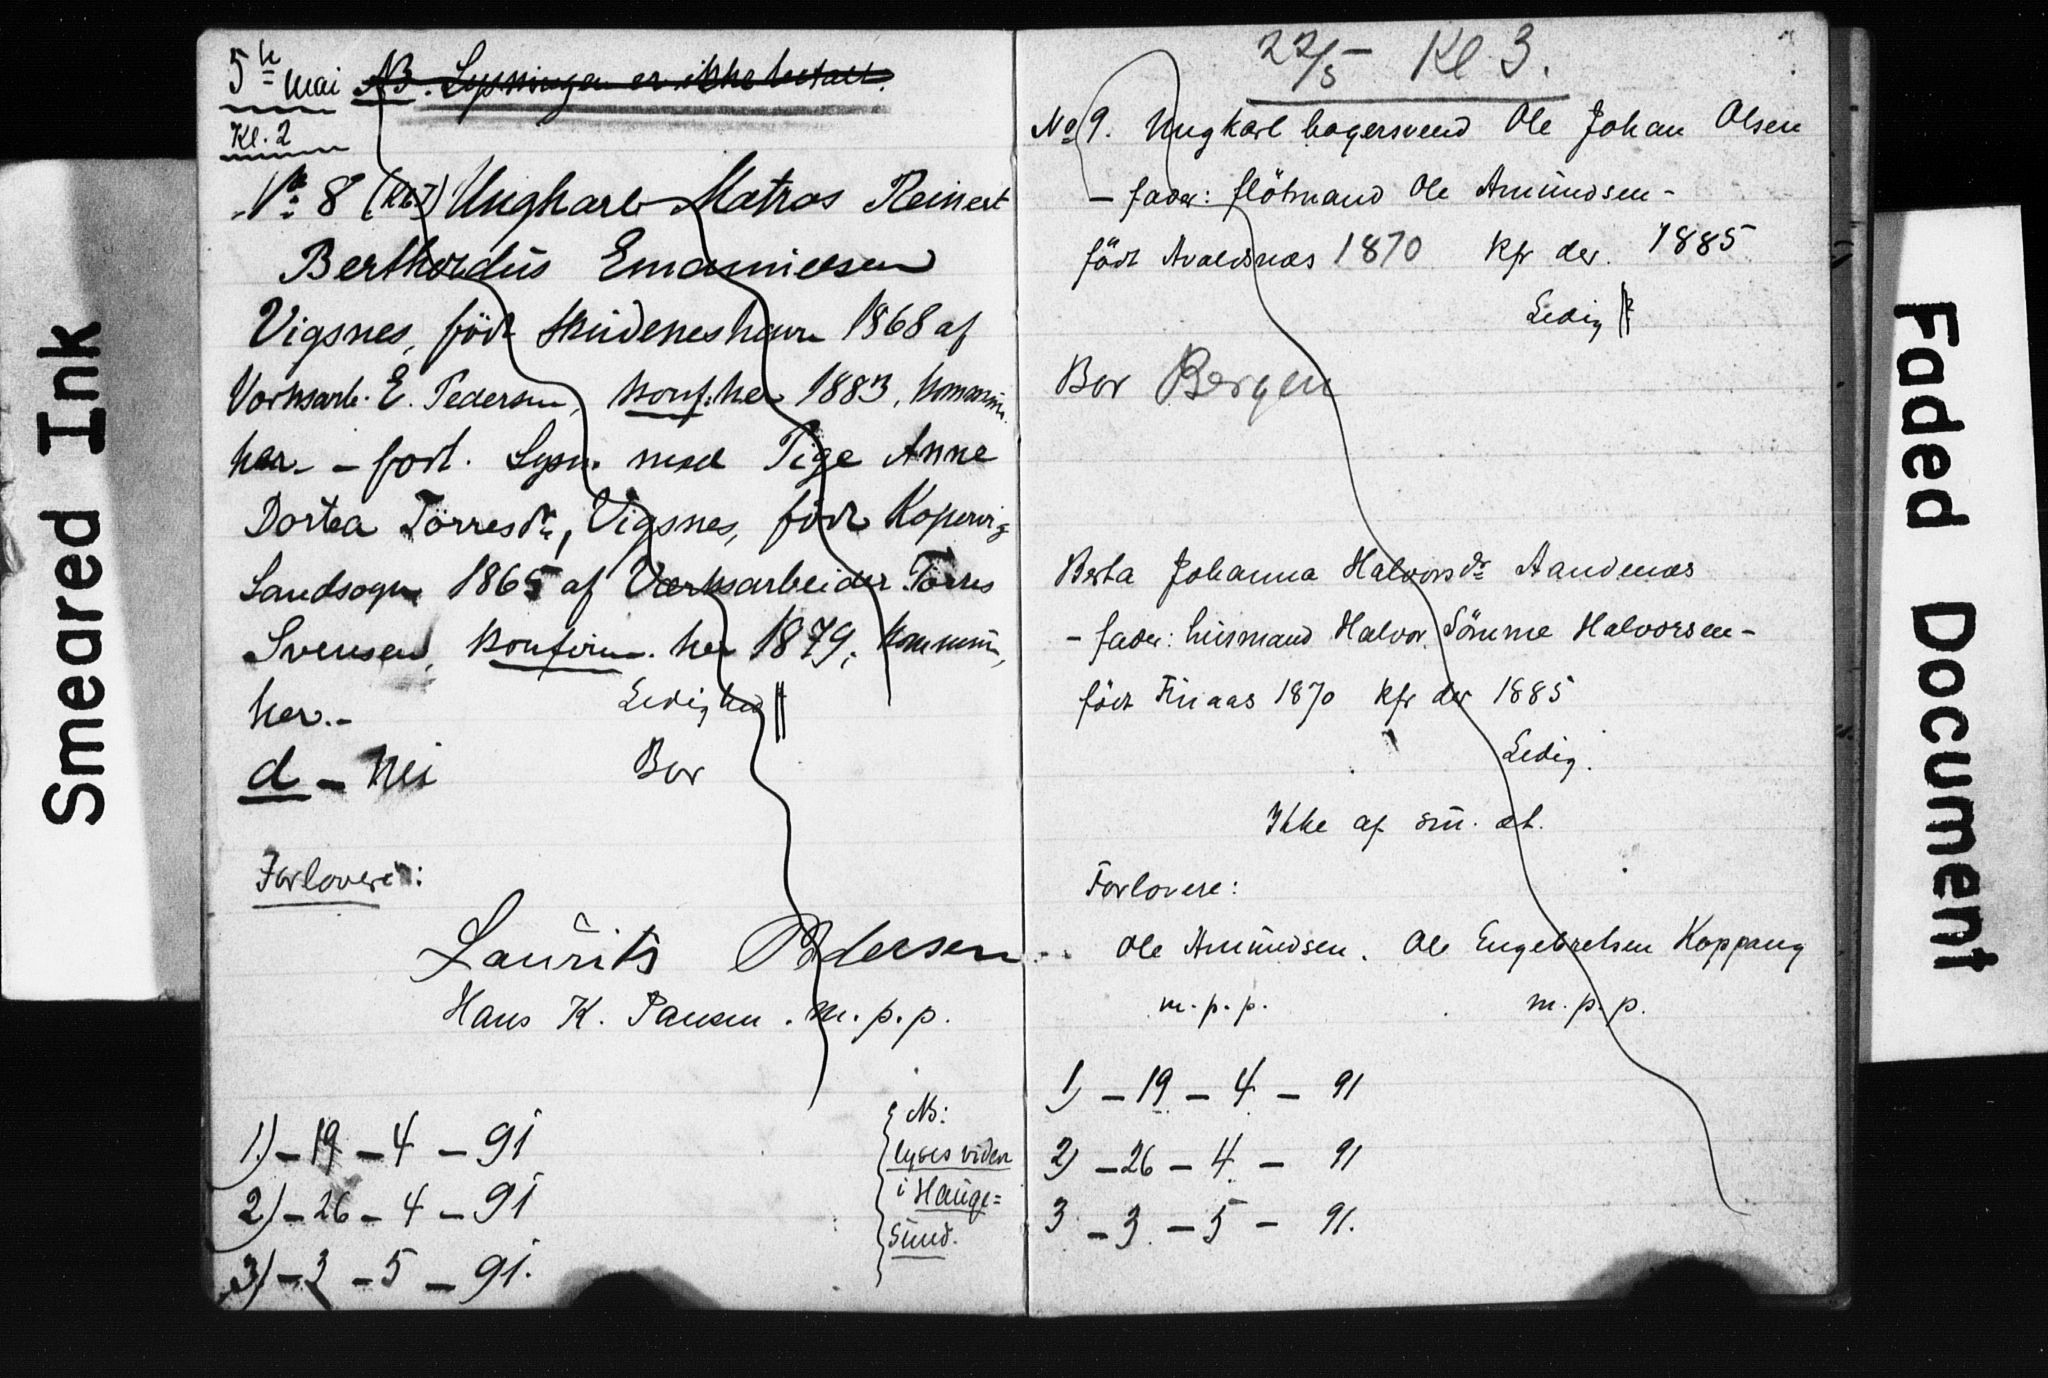 Smeared Ink
5te mai NB. Lysningen er ikke betalt.
Kl. 2
No 8 (Kl. 7) Ungkarl Matros Reinert
Berthordus Emanuelsen
Vigsnes, födt Skudeneshavn 1868 af
Verksarb. E. Pedersen, konf. her 1883, kommun.
her - forl. Lysn. med Pige Anne
Dortea Törresdr, Vigsnes, födt Kopervig
Landsogn 1865 af Verksarbeider Törres
Svensen, konfirm. her 1879, kommun,
her. - Ledighed
d - Nei Bor
Forlovere:
Laurits Pedersen
Hans K. Pausen . m. p. p.
1) - 19 - 4 - 91
2) - 26 - 4 - 91
3) - 3 - 5 - 91.
NB:
lyses viden
i Hauge=
sund.
22/5 Kl 3.
No 9. Ungkarl bagersvend Ole Johan Olsen
- fader: flötmand Ole Amundsen -
födt Avaldsnæs 1870 kfr der. 1885
Ledig
Bor Bergen
Berta Johanna Halvorsdr Aandenæs
- fader: husmand Halvor Sömme Halvorsen -
födt Finaas 1870 kfr der 1885
Ledig.
Ikke af sm. æt.
Forlovere:
Ole Amundsen. Ole Engebretsen Koppang
m. p. p. m. p. p.
1) - 19 - 4 - 91
2) - 26 - 4 - 91
3 - 3 - 5 - 91.
Faded Document